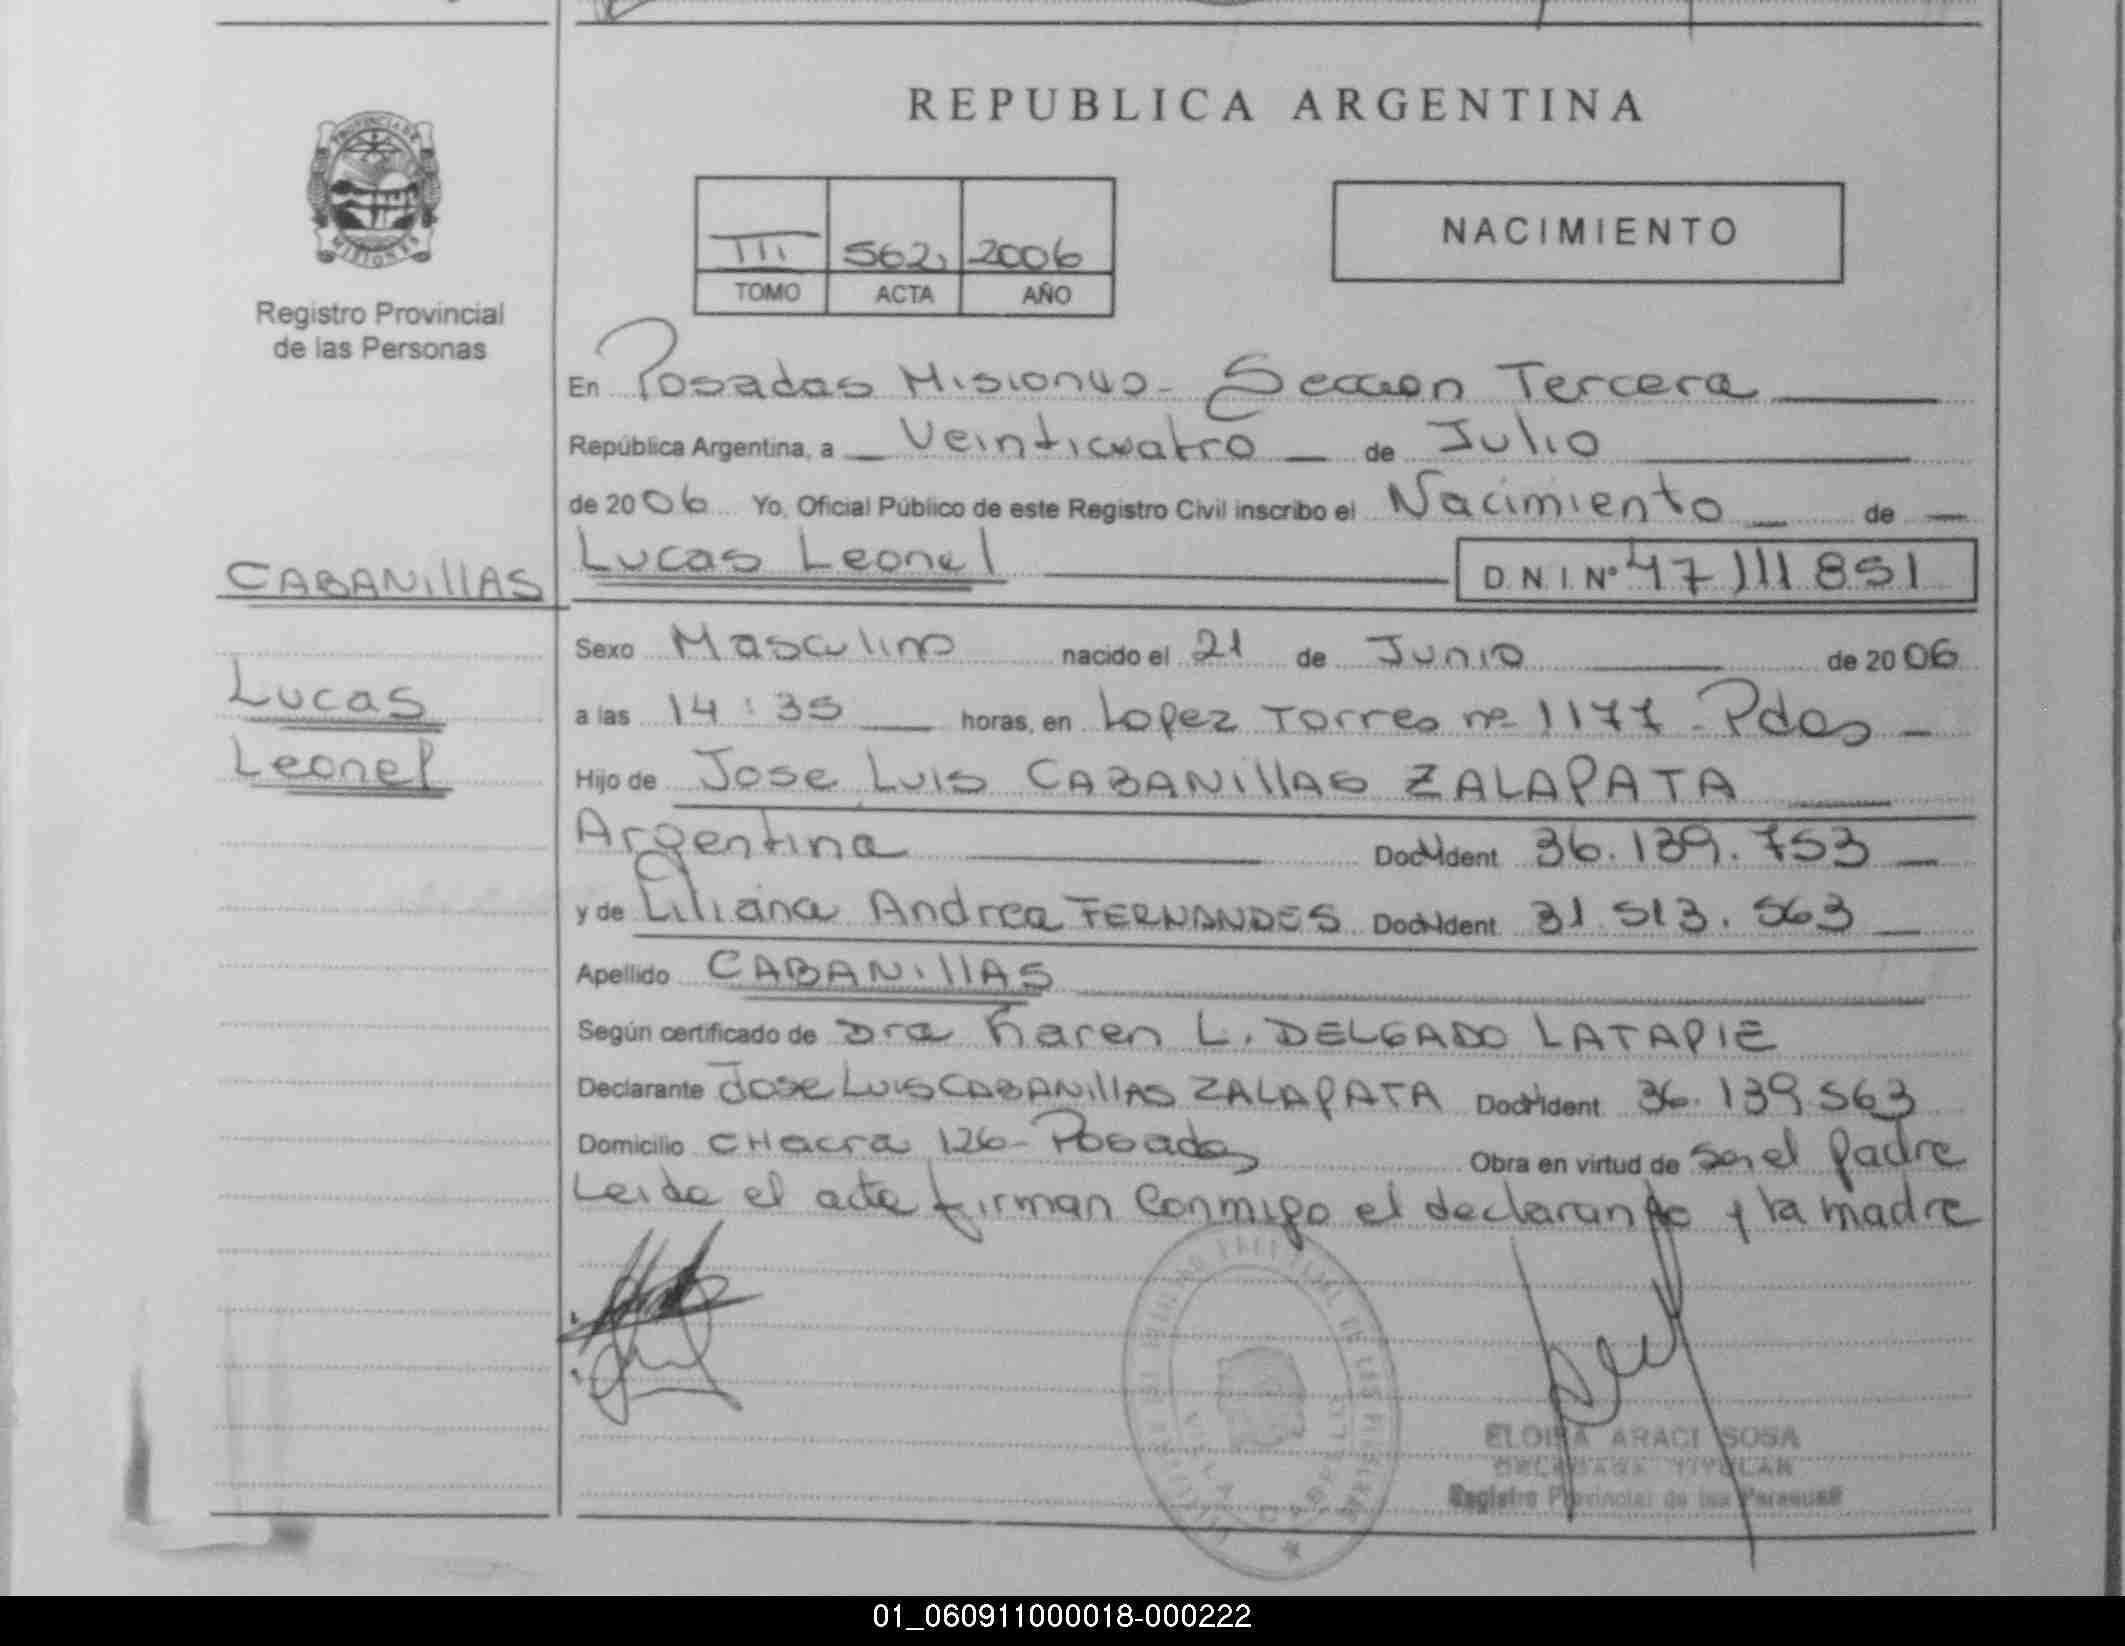 REPUBLICA ARGENTINA
PROVINCIA DE
MISIONES
Registro Provincial
de las Personas
III 562 2006
TOMO ACTA AÑO
NACIMIENTO
En Posadas Misiones - Seccion Tercera
República Argentina, a Veinticuatro de Julio
de 2006 Yo, Oficial Público de este Registro Civil inscribo el Nacimiento de
CABANILLAS
Lucas
Leonel
Lucas Leonel D.N.I.Nº 47111851
Sexo Masculino nacido el 21 de Junio de 2006
a las 14:35 horas, en Lopez Torres nº 1177 - Pdas
Hijo de Jose Luis CABANILLAS ZALAPATA
Argentina Doc. Ident 36.139.753
y de Liliana Andrea FERNANDES Doc. Ident 31.513.563
Apellido CABANILLAS
Según certificado de Dra Karen L. DELGADO LATAPIE
Declarante Jose Luis CABANILLAS ZALAPATA Doc. Ident 36.139563
Domicilio CHacra 126 - Posadas Obra en virtud de ser el padre
Leida el acta firman conmigo el declarante y la madre
VILLA CABELLO
ELOISA ARACI SOSA
DELEGADA TITULAR
Registro Provincial de las Personas
01_060911000018-000222